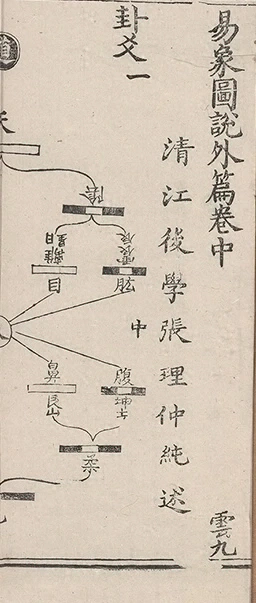 易象圖說外篇卷中
雲九
清江後學張理仲純述
卦爻一
陰
震辰
肱
離日
星
目
中
腹
坤土
鼻
艮山
柔